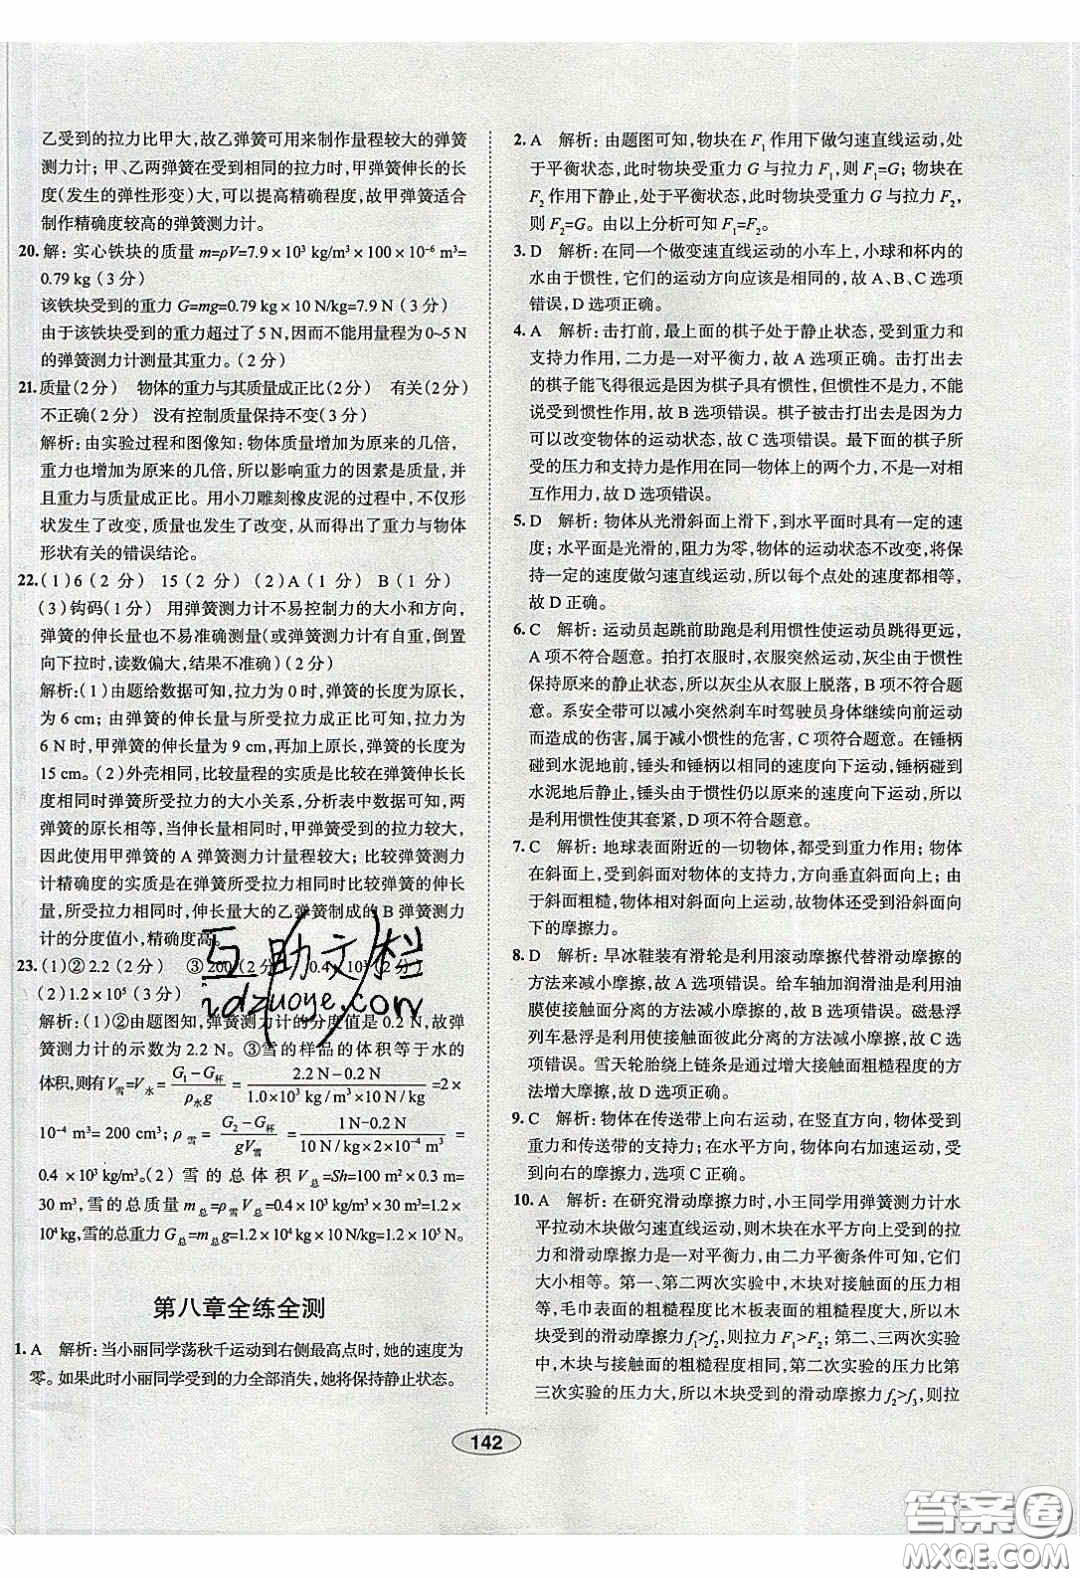 乙受到的拉力比甲大,故乙弹簧可用来制作量程较大的弹簧
测力计;甲、乙两弹簧在受到相同的拉力时,甲弹簧伸长的长
度(发生的弹性形变)大,可以提高精确程度,故甲弹簧适合
制作精确度较高的弹簧测力计。
20.解:实心铁块的质量 m=ρV=7.9 × 10³ kg/m³ × 100 × 10⁻⁶ m³=
0.79 kg(3 分)
该铁块受到的重力 G=mg=0.79 kg × 10 N/kg=7.9 N(3 分)
由于该铁块受到的重力超过了 5 N,因而不能用量程为 0~5 N
的弹簧测力计测量其重力。(2 分)
21.质量(2 分) 物体的重力与其质量成正比(2 分) 有关(2 分)
不正确(2 分) 没有控制质量保持不变(3 分)
解析:由实验过程和图像知:物体质量增加为原来的几倍,
重力也增加为原来的几倍,所以影响重力的因素是质量,并
且重力与质量成正比。用小刀雕刻橡皮泥的过程中,不仅形
状发生了改变,质量也发生了改变,从而得出了重力与物体
形状有关的错误结论。
22.(1)6(2 分) 15(2 分) (2)A(1 分) B(1 分)
(3)钩码(1 分) 用弹簧测力计不易控制力的大小和方向,
弹簧的伸长量也不易准确测量(或弹簧测力计有自重,倒置
向下拉时,读数偏大,结果不准确)(2 分)
解析:(1)由题给数据可知,拉力为 0 时,弹簧的长度为原长,
为 6 cm;由弹簧的伸长量与所受拉力成正比可知,当拉力为
6 N 时,甲弹簧的伸长量为 9 cm,再加上原长,弹簧的长度为
15 cm。(2)外壳相同,比较量程的实质是比较在弹簧伸长长
度相同时弹簧所受拉力的大小关系,分析表中数据可知,两
弹簧的原长相等,当伸长量相同时,甲弹簧受到的拉力较大,
因此使用甲弹簧的 A 弹簧测力计量程较大;比较弹簧测力
计精确度的实质是在弹簧所受拉力相同时,比较弹簧的伸长
量,所受拉力相同时,伸长量大的乙弹簧制成的 B 弹簧测力
计的分度值小,精确度高。
23.(1)②2.2(2 分) ③200(2 分) 0.4 × 10³(2 分)
(2)1.2 × 10⁵(3 分)
解析:(1)②由题图知,弹簧测力计的分度值是 0.2 N,故弹
簧测力计的示数为 2.2 N。③雪的样品的体积等于水的
体积,则有V雪=V水=(G₁−G杯)/(ρ水g)=(2.2 N−0.2 N)/(1.0×10³ kg/m³×10 N/kg)=2×
10⁻⁴ m³= 200 cm³;ρ雪=(G₂−G杯)/(gV雪)=(1 N−0.2 N)/(10 N/kg×2×10⁻⁴ m³)=
0.4 × 10³ kg/m³。(2)雪的总体积 V总=Sh=100 m² × 0.3 m=
30 m³,雪的总质量 m总=ρ雪V总=0.4 × 10³ kg/m³ × 30 m³=1.2 ×
10⁴ kg,雪的总重力 G总=m总g=1.2 × 10⁴ kg × 10 N/kg=1.2 × 10⁵ N。
第八章全练全测
1. A 解析:当小丽同学荡秋千运动到右侧最高点时,她的速度为
零。如果此时小丽同学受到的力全部消失,她将保持静止状态。
2. A 解析:由题图可知,物块在 F₁ 作用下做匀速直线运动,处
于平衡状态,此时物块受重力 G 与拉力 F₁,则 F₁=G;物块在
F₂ 作用下静止,处于平衡状态,此时物块受重力 G 与拉力 F₂,
则 F₂=G。由以上分析可知 F₁=F₂。
3. D 解析:在同一个做变速直线运动的小车上,小球和杯内的
水由于惯性,它们的运动方向应该是相同的,故 A、B、C 选项
错误,D 选项正确。
4. A 解析:击打前,最上面的棋子处于静止状态,受到重力和
支持力作用,二力是一对平衡力,故 A 选项正确。击打出去
的棋子能飞得很远,是由于棋子具有惯性,但惯性不是力,不能
说受到惯性作用,故 B 选项错误。棋子被击打出去是因为力
可以改变物体的运动状态,故 C 选项错误。最下面的棋子所
受的压力和支持力是作用在同一物体上的两个力,不是一对相
互作用力,故 D 选项错误。
5. D 解析:物体从光滑斜面上滑下,到水平面时具有一定的速
度;水平面是光滑的,阻力为零,物体的运动状态不会改变,将保
持一定的速度做匀速直线运动,所以每个点处的速度都相等,
故 D 正确。
6. C 解析:运动员起跳前助跑是利用惯性使运动员跳得更远,
A 项不符合题意。拍打衣服时,衣服突然运动,灰尘由于惯性
保持原来的静止状态,所以灰尘从衣服上脱落,B 项不符合题
意。系安全带可以减小突然刹车时驾驶员身体继续向前运动
造成的伤害,属于减小惯性的危害,C 项符合题意。在锤柄
碰到水泥地前,锤头和锤柄以相同的速度向下运动,锤柄碰到
水泥地后静止,锤头由于惯性仍以原来的速度向下运动,所以
是利用惯性使其套紧,D 项不符合题意。
7. C 解析:地球表面附近的一切物体,都受到重力作用;木块
在斜面上,受到斜面对物体的支持力,方向垂直斜面向上;由
于斜面粗糙,物体相对斜面向上运动,所以物体还受到沿斜面向
下的摩擦力。
8. D 解析:旱冰鞋装有滑轮是利用滚动摩擦代替滑动摩擦的
方法来减小摩擦,A 选项错误。给车轴加润滑油是利用油
膜使接触面分离的方法减小摩擦,B 选项错误。磁悬浮
列车悬浮行驶是利用使接触面彼此分离的方法减小摩擦,C 选
项错误。雪天轮胎绕上链条是通过增大接触面粗糙程度的方
法增大摩擦,D 选项正确。
9. C 解析:物体在传送带上向右运动,在竖直方向,物体受到
重力和传送带的支持力;在水平方向,物体向右加速运动,受
到向右的摩擦力,选项 C 正确。
10. A 解析:在研究滑动摩擦力时,小王同学用弹簧测力计水
平拉动木块做匀速直线运动,则木块在水平方向上受到的拉
力和滑动摩擦力是一对平衡力,由二力平衡条件可知,它们
大小相等。第一、第二两次实验中,木块对接触面的压力相
等,毛巾表面的粗糙程度比木板表面的粗糙程度大,所以木
块受到的滑动摩擦力f₁>f₂,则拉力 F₁>F₂;第二、三两次实验
中,木块与接触面的粗糙程度相同,第二次实验的压力比第
三次实验的压力大,所以木块受到的滑动摩擦力 f₂>f₃,则拉
142
互助文档
idzuoye.com
答案圈
MXQE.COM